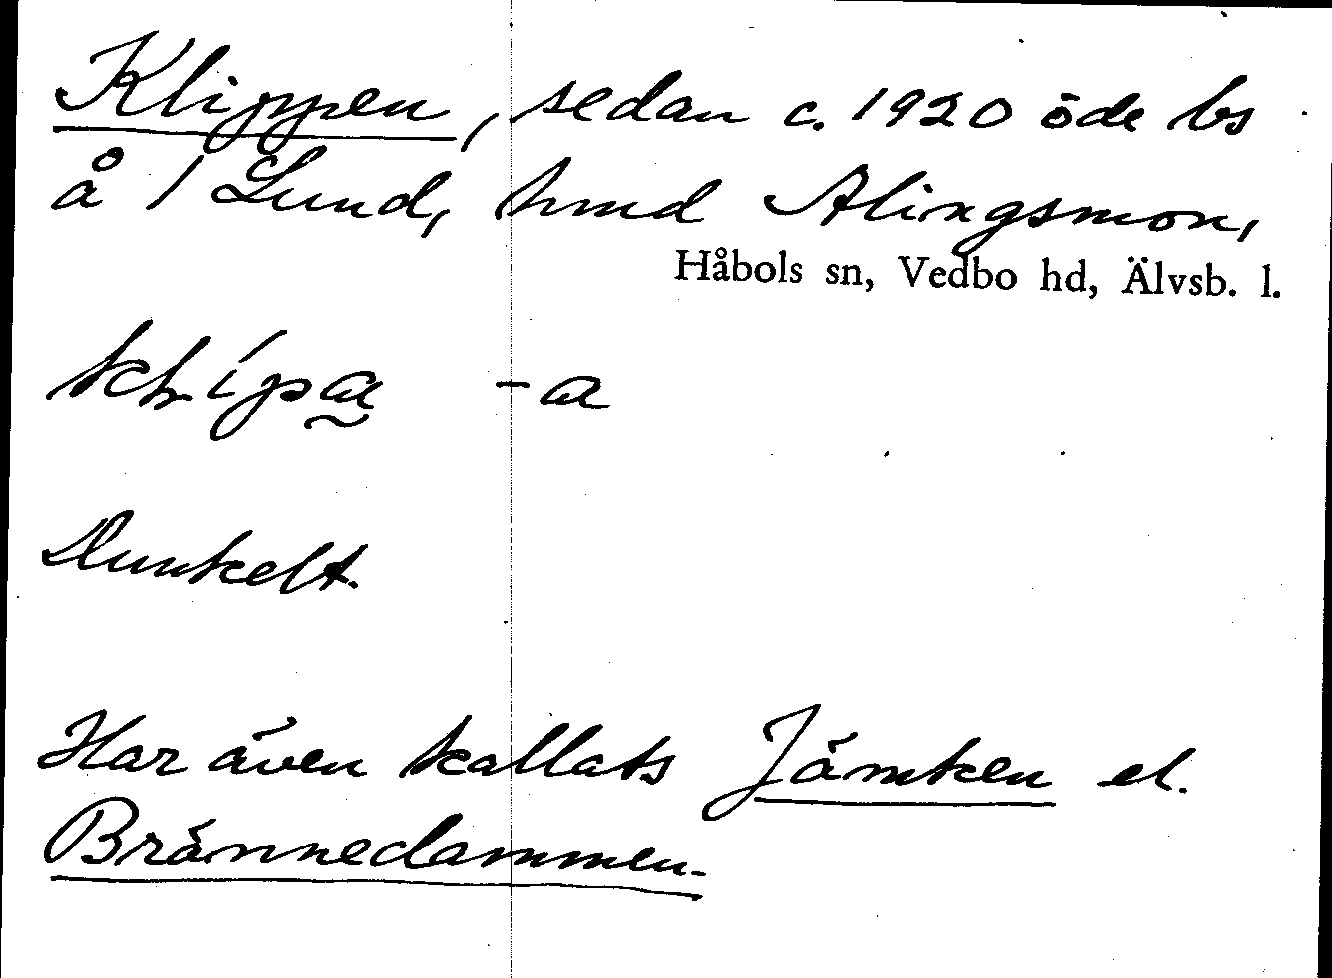 Klippen, sedan c. 1920 öde bs
å 1 Lund, hmd Alingsmon,
Håbols sn, Vedbo hd, Älvsb. l.
-a
Dunkelt.
Har även kallats Jämken el.
Brännedammen.